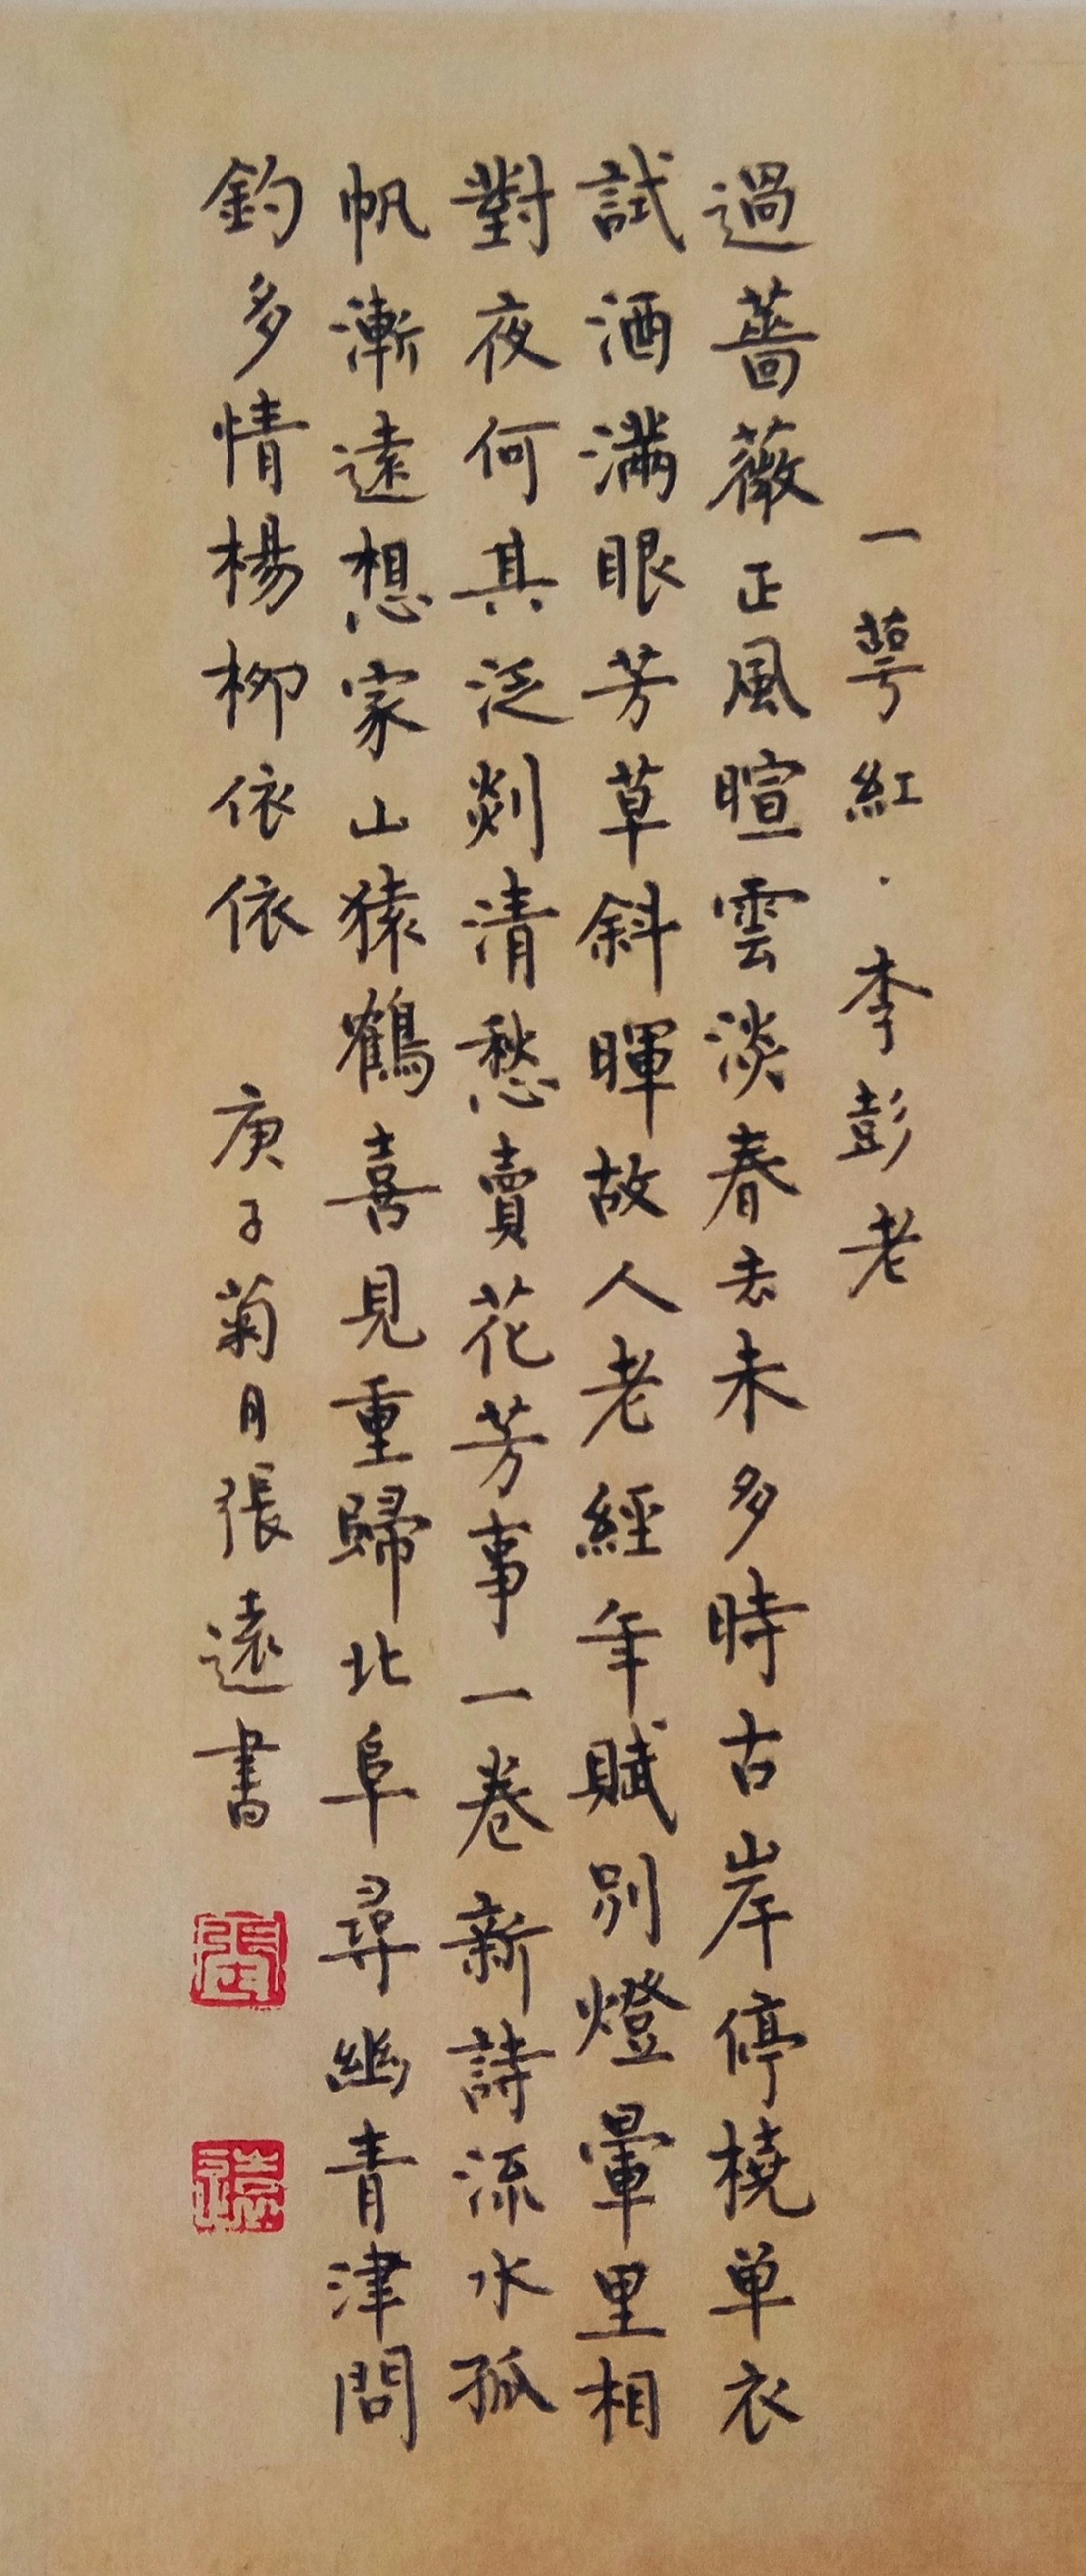 一萼紅·李彭老
過薔薇正風暄雲淡春去未多時古岸停橈单衣
試酒滿眼芳草斜暉故人老經年賦別燈暈里相
對夜何其泛剡清愁賣花芳事一卷新詩流水孤
帆漸遠想家山猿鶴喜見重歸北阜尋幽青津問
釣多情楊柳依依 庚子菊月張遠書
張
遠